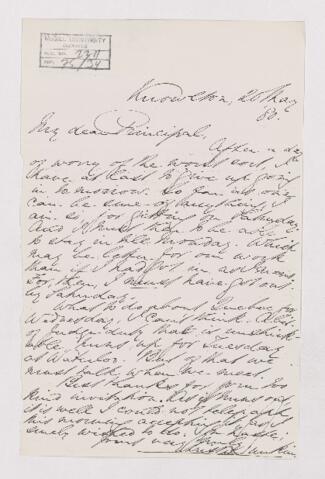 McGILL UNIVERSITY
ARCHIVES
ACC. NO. 927
REF. 25/34
Knowlton, 20 May
80.
My dear Principal,
After a day
of worry of the worst sort, I
have at last to give up going
in to-morrow. So far as one
can be sure of anything, I
am so, for getting in Saturday.
And I must then to be able
to stay in till Monday. Which
may be better for our work
than if I had got in
For, then, I must have got out
by Saturday.
What to do about Quebec for
Wednesday, I can't think. A bit
of Judge-duty that is unshirk-
able, turns up for Tuesday
at Waterloo. But of that we
must talk, when we meet.
Best thanks for your so
kind invitation. As it turns out
it is well I could not telegraph
this morning accepting it, as I
wished to do. In haste,
yours very truly
Dunkin